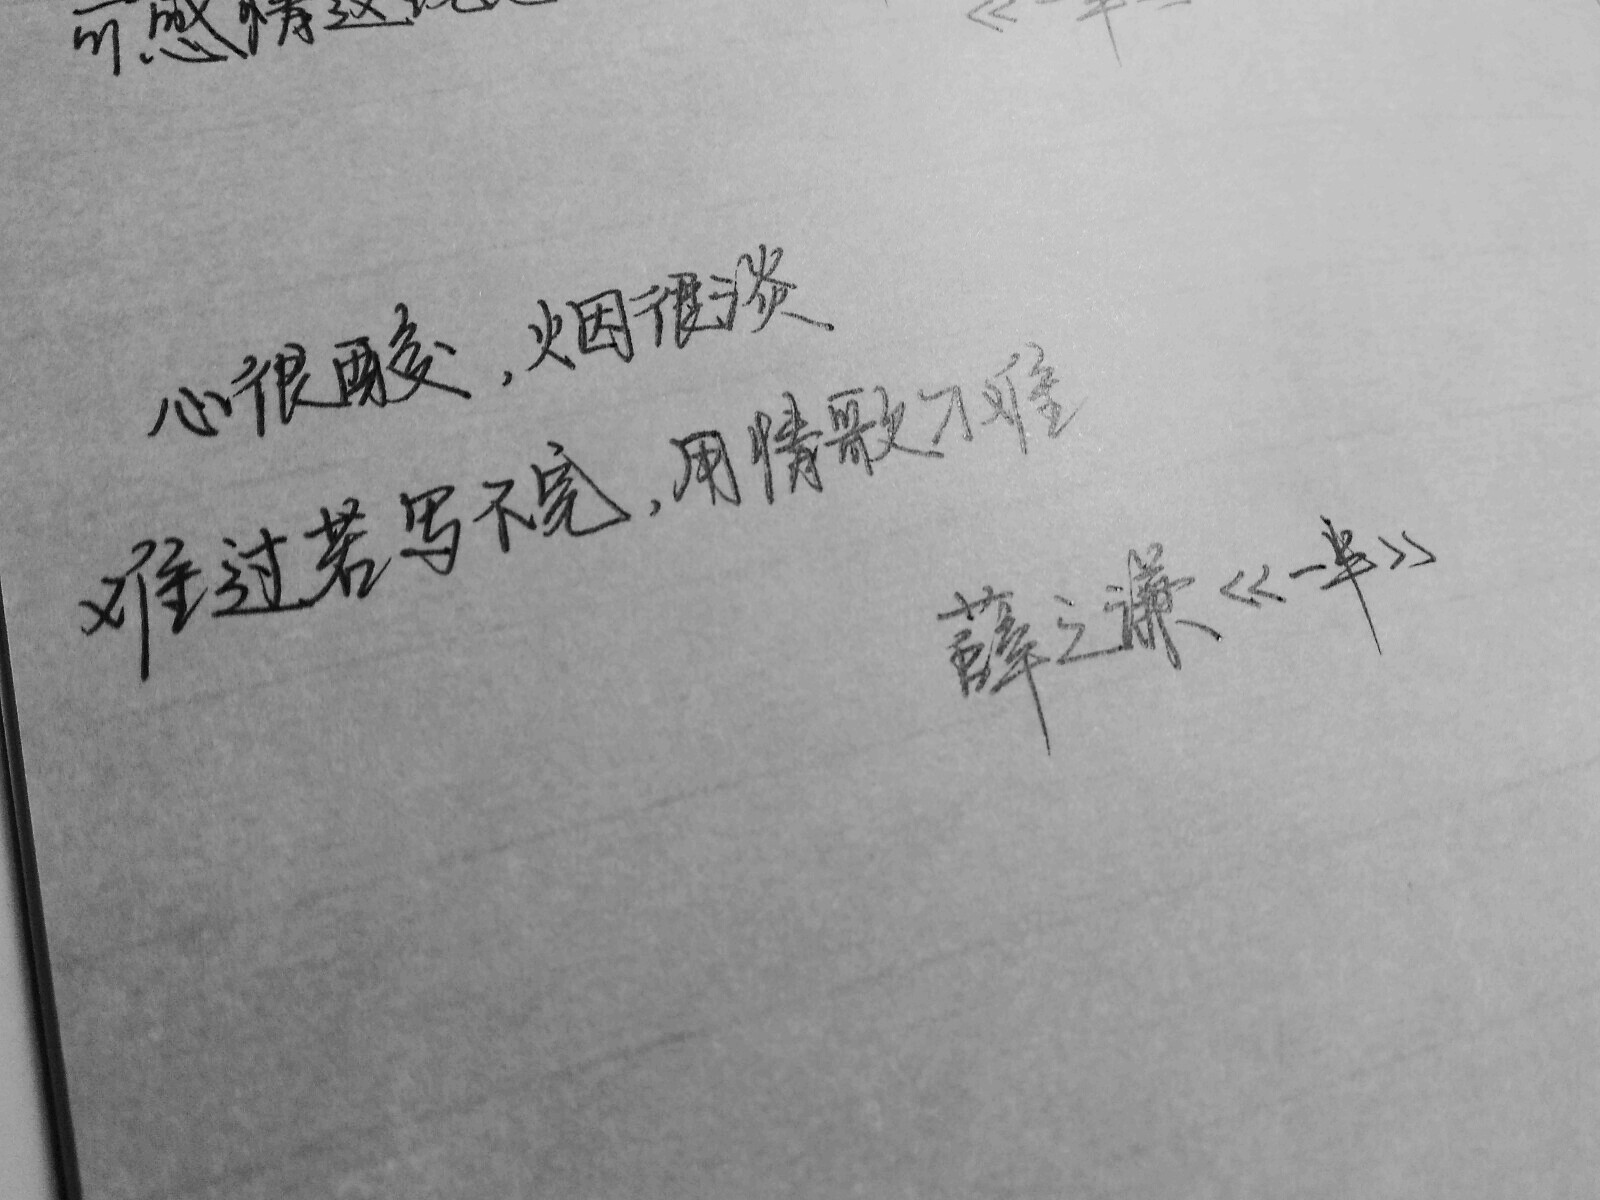 可感情这
《一半
心很酸，烟很淡
难过若写不完，用情歌刁难
薛之谦《一半》